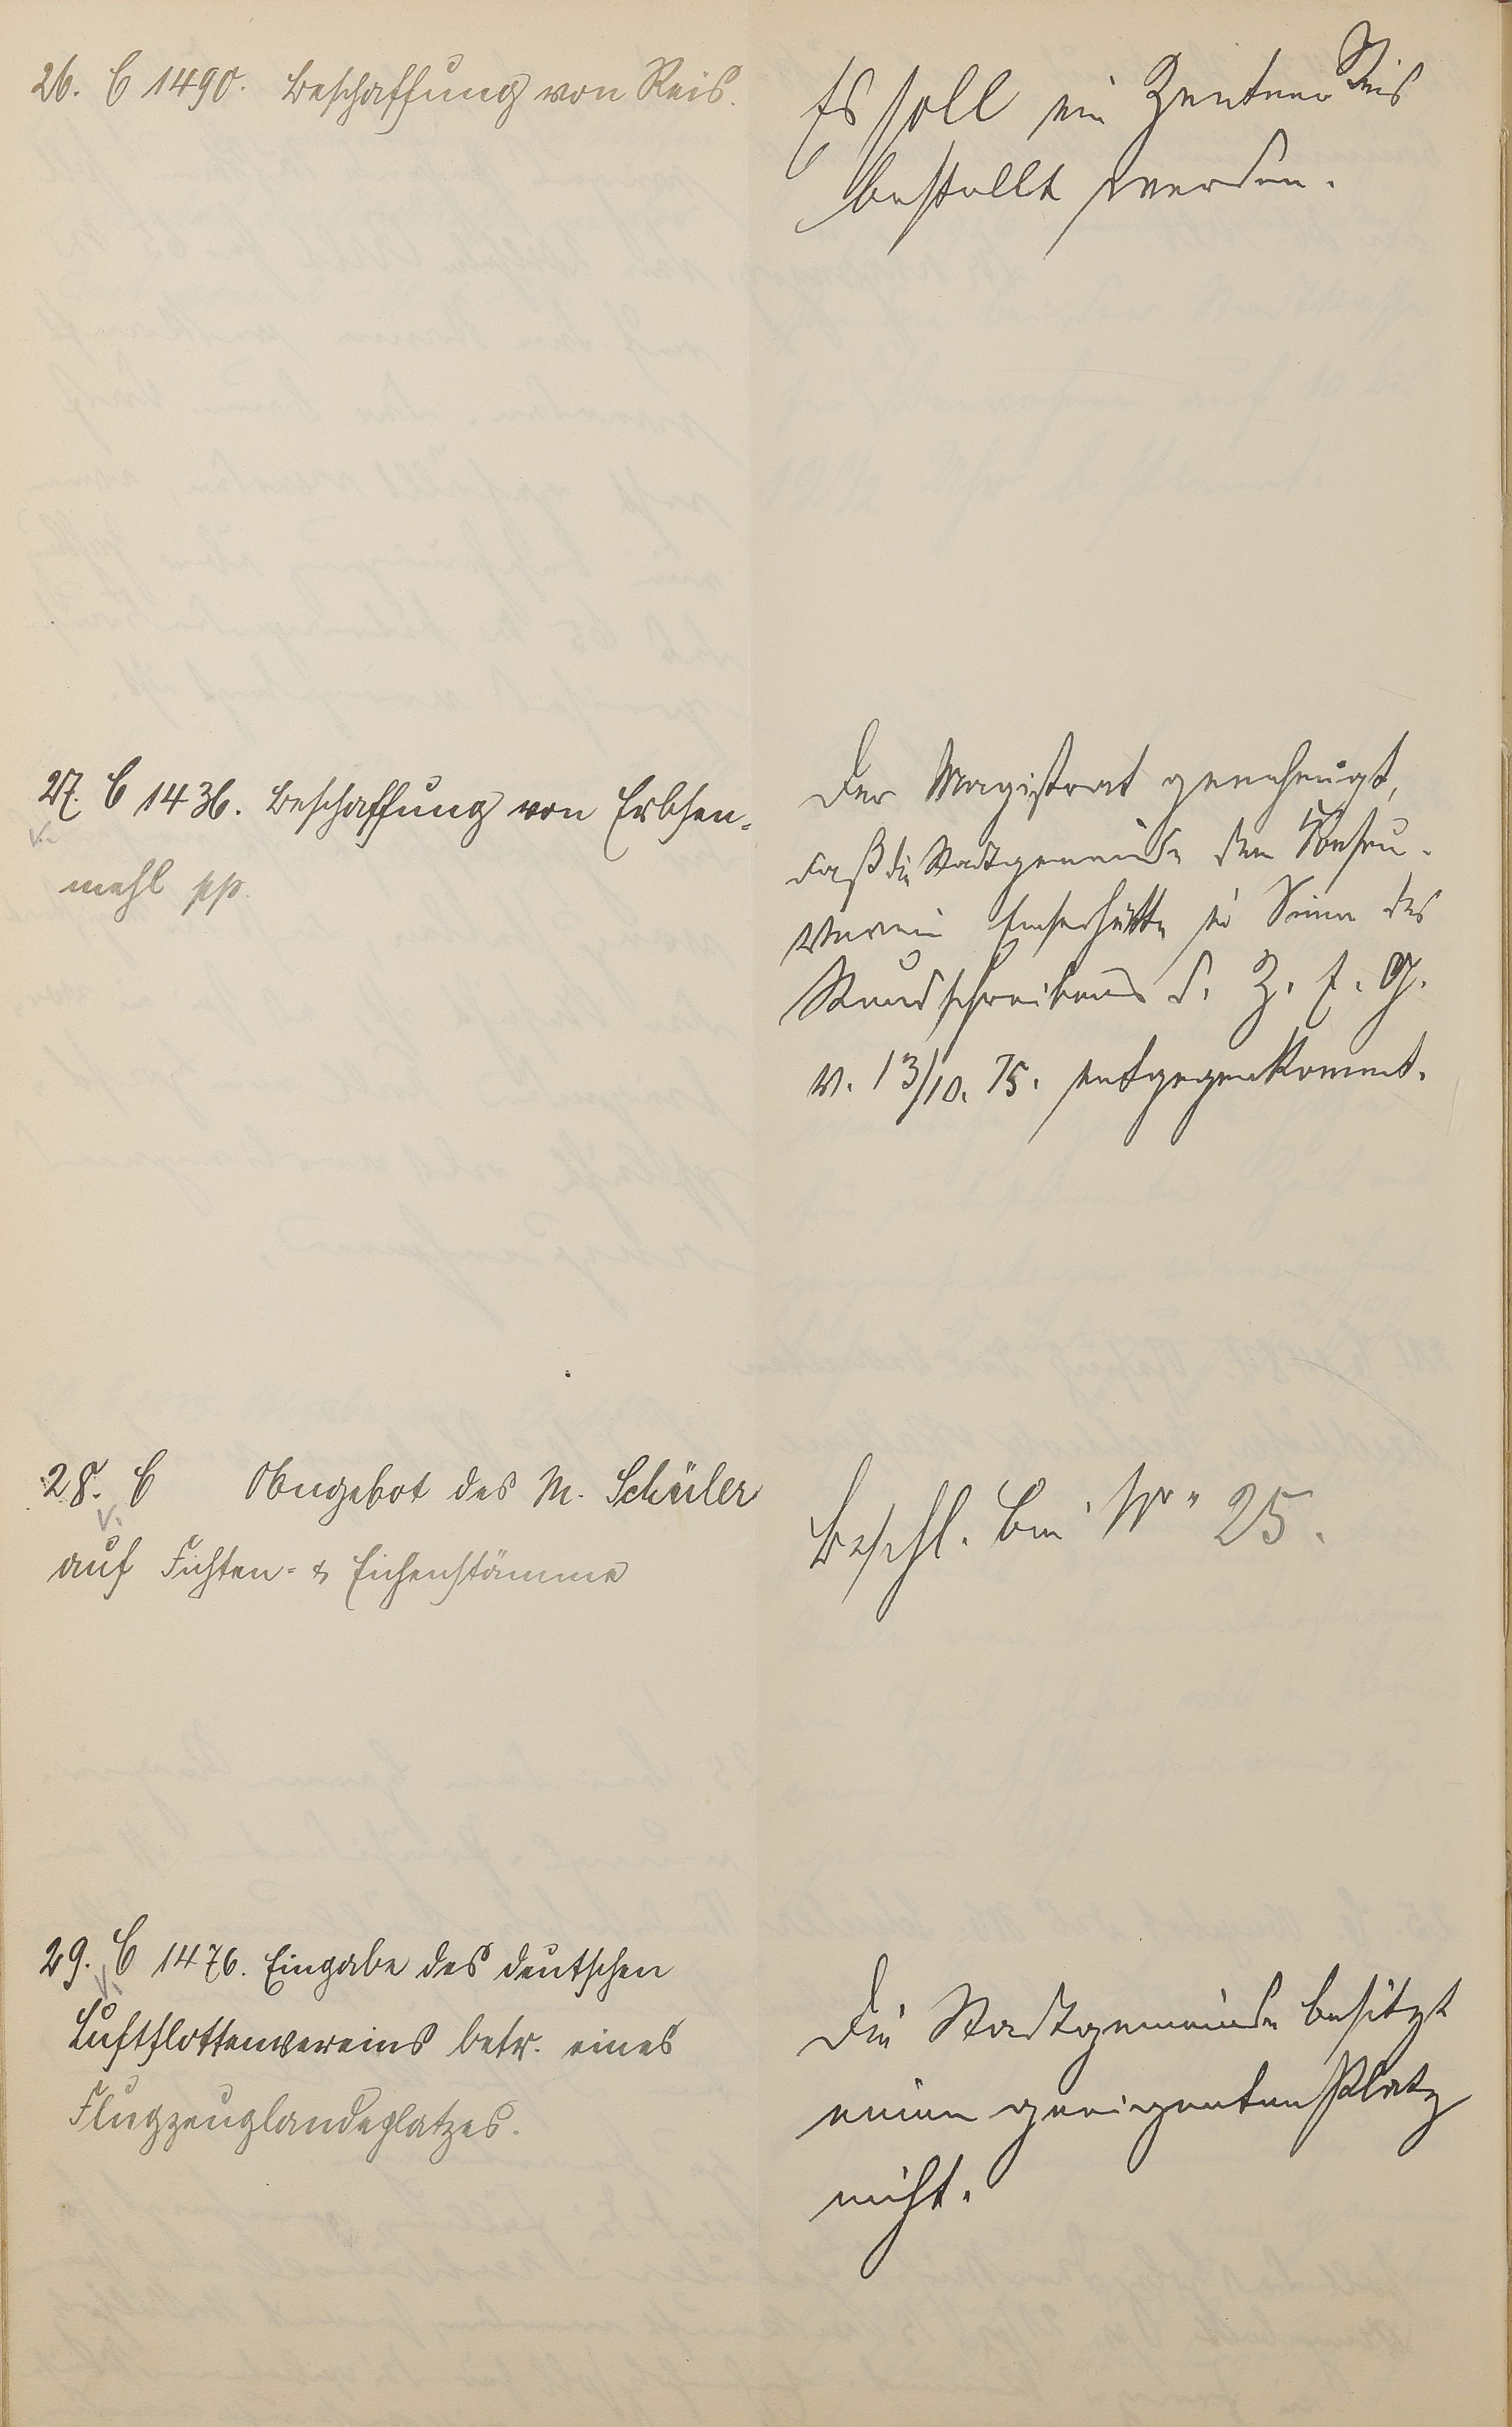 26. C 1490. Beschaffung von Reis.
Es soll ein Zentner Reis
bestellt werden.
27. C 1436. Beschaffung von Erbsen-
mehl pp.
Der Magistrat genehmigt,
daß die Stadtgemeinde dem
Verein im Sinne des
Rundschreibens d. Z. E. G.
v. 13/10. 15. entgegenkommt.
28. C Angebot des M. Schüler
auf Fichten- & Eichenstämme
Beschl. bei Nr. 25.
29. C 1476. Eingabe des deutschen
Luftflottenvereins betr. eines
Flugzeuglandeplatzes.
Die Stadtgemeinde besitzt
einen geeigneten Platz
nicht.